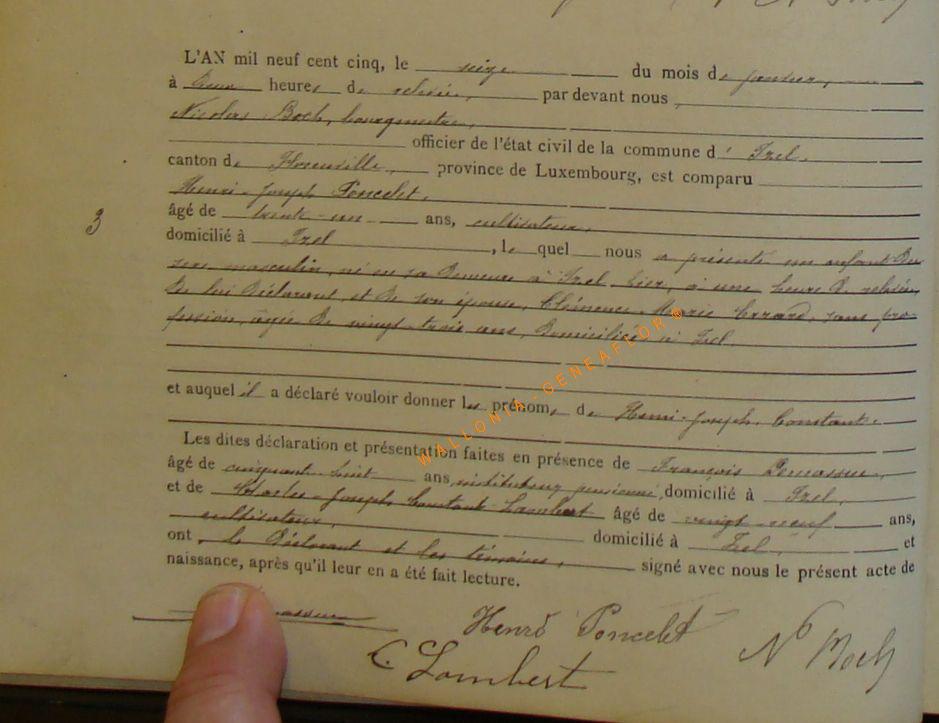 L'AN mil neuf cent cinq, le seize du mois de janvier,
à deux heures de relevée, par devant nous,
Nicolas Boch, bourgmestre,
officier de l'état civil de la commune d'Izel,
canton de Florenville, province de Luxembourg, est comparu
Henri-Joseph Poncelet,
âgé de trente-un ans, cultivateur,
3
domicilié à Izel, lequel nous a présenté un enfant du
sexe masculin, né en sa demeure à Izel hier, à une heure de relevée,
de lui déclarant, et de son épouse, Clémence-Marie Errard, sans pro-
fession, âgée de vingt-trois ans, domiciliée à Izel.
et auquel il a déclaré vouloir donner les prénoms de Henri-Joseph, Constant.
Les dites déclaration et présentation faites en présence de François
âgé de cinquante-huit ans, instituteur pensionné, domicilié à Izel,
et de Charles-Joseph Constant Lambert âgé de vingt-neuf ans,
cultivateur, domicilié à Izel, et
ont le déclarant et les témoins, signé avec nous le présent acte de
naissance, après qu'il leur en a été fait lecture.
Henri Poncelet
C. Lambert
N Boch
WALLONIA-GENEAFLOR ©